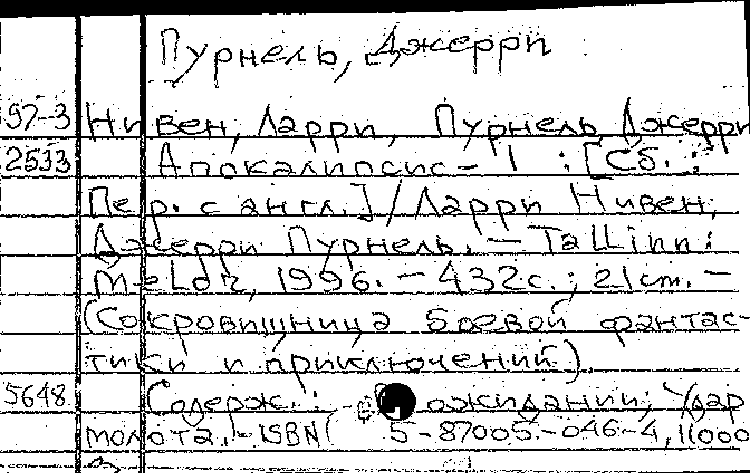 Пурнель, Джерри
97-3 Нивен, Ларри, Пурнель, Джерри
2533 Апокалипсис - 1 : [Сб. :
Пер. с англ.] / Ларри Нивен,
Джерри Пурнель. - Tallinn :
Melor, 1996. - 432с. ; 21 cm. -
(Сокровищница боевой фантас-
тики и приключений).
5648 Содерж. : В ожидании; Удар
молота. - ISBN 5-87005-046-4, 11000